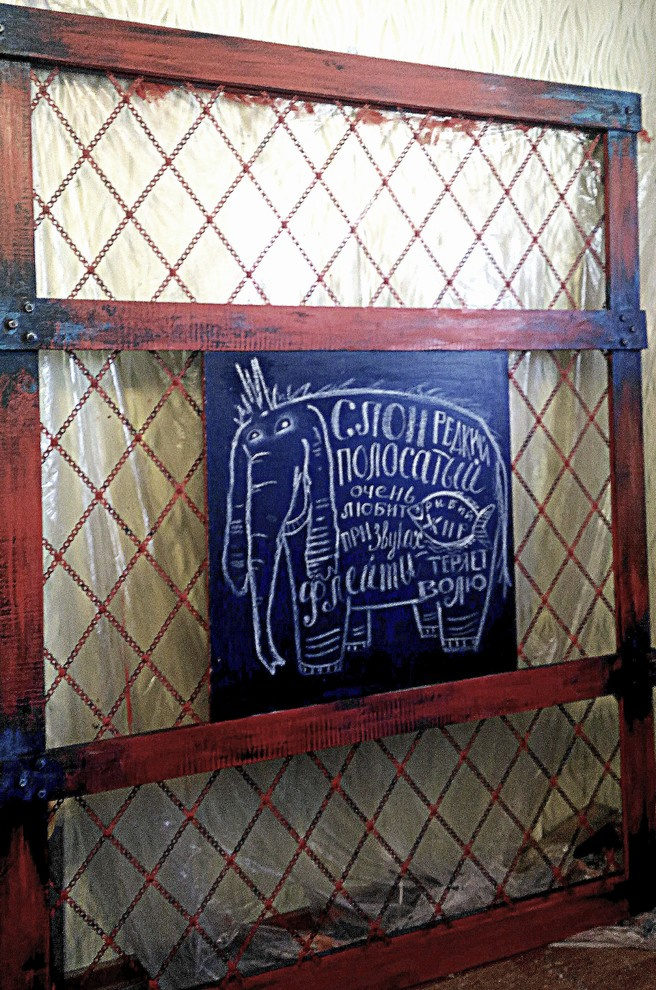 СЛОН РЕДКИЙ
ПОЛОСАТЫЙ
ОЧЕНЬ
ЛЮБИТ РЫБИЙ
ЖИР
ПРИ ЗВУКАХ
ФЛЕЙТЫ ТЕРЯЕТ
ВОЛЮ